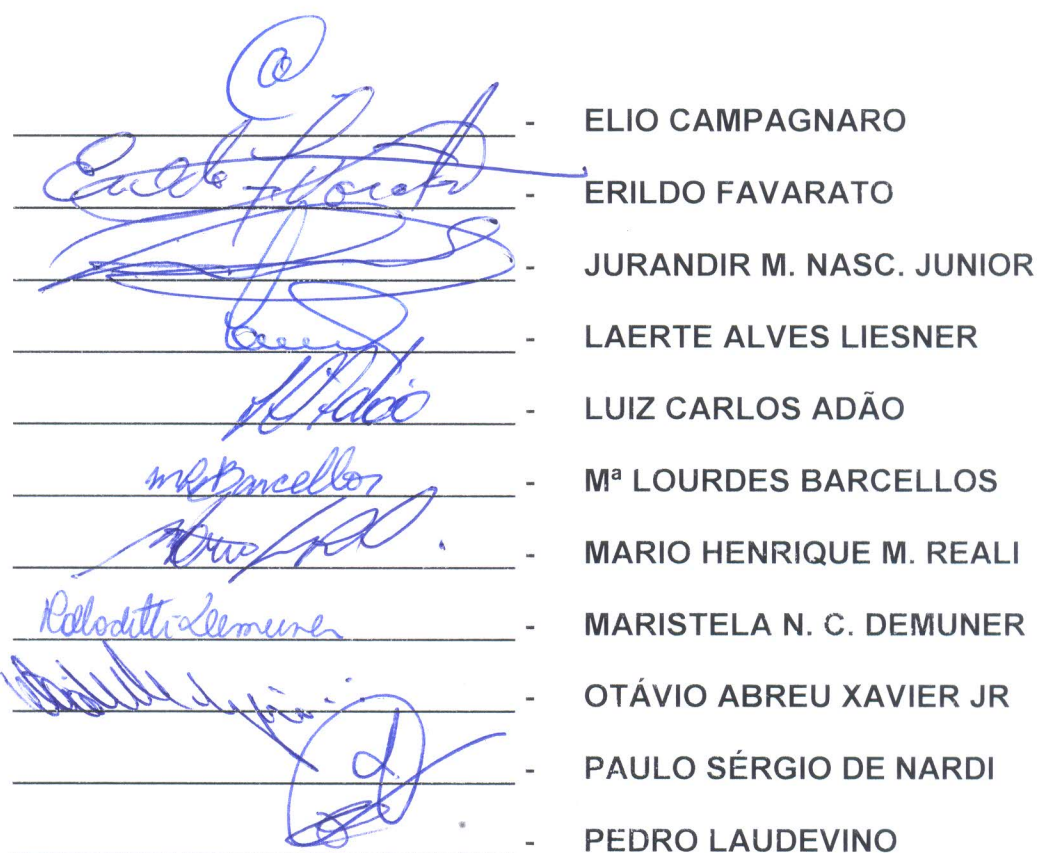 - ELIO CAMPAGNARO
Erildo Favorato - ERILDO FAVARATO
- JURANDIR M. NASC. JUNIOR
- LAERTE ALVES LIESNER
Adão - LUIZ CARLOS ADÃO
Barcellos - Mª LOURDES BARCELLOS
Mario - MARIO HENRIQUE M. REALI
Demuner - MARISTELA N. C. DEMUNER
- OTÁVIO ABREU XAVIER JR
- PAULO SÉRGIO DE NARDI
- PEDRO LAUDEVINO